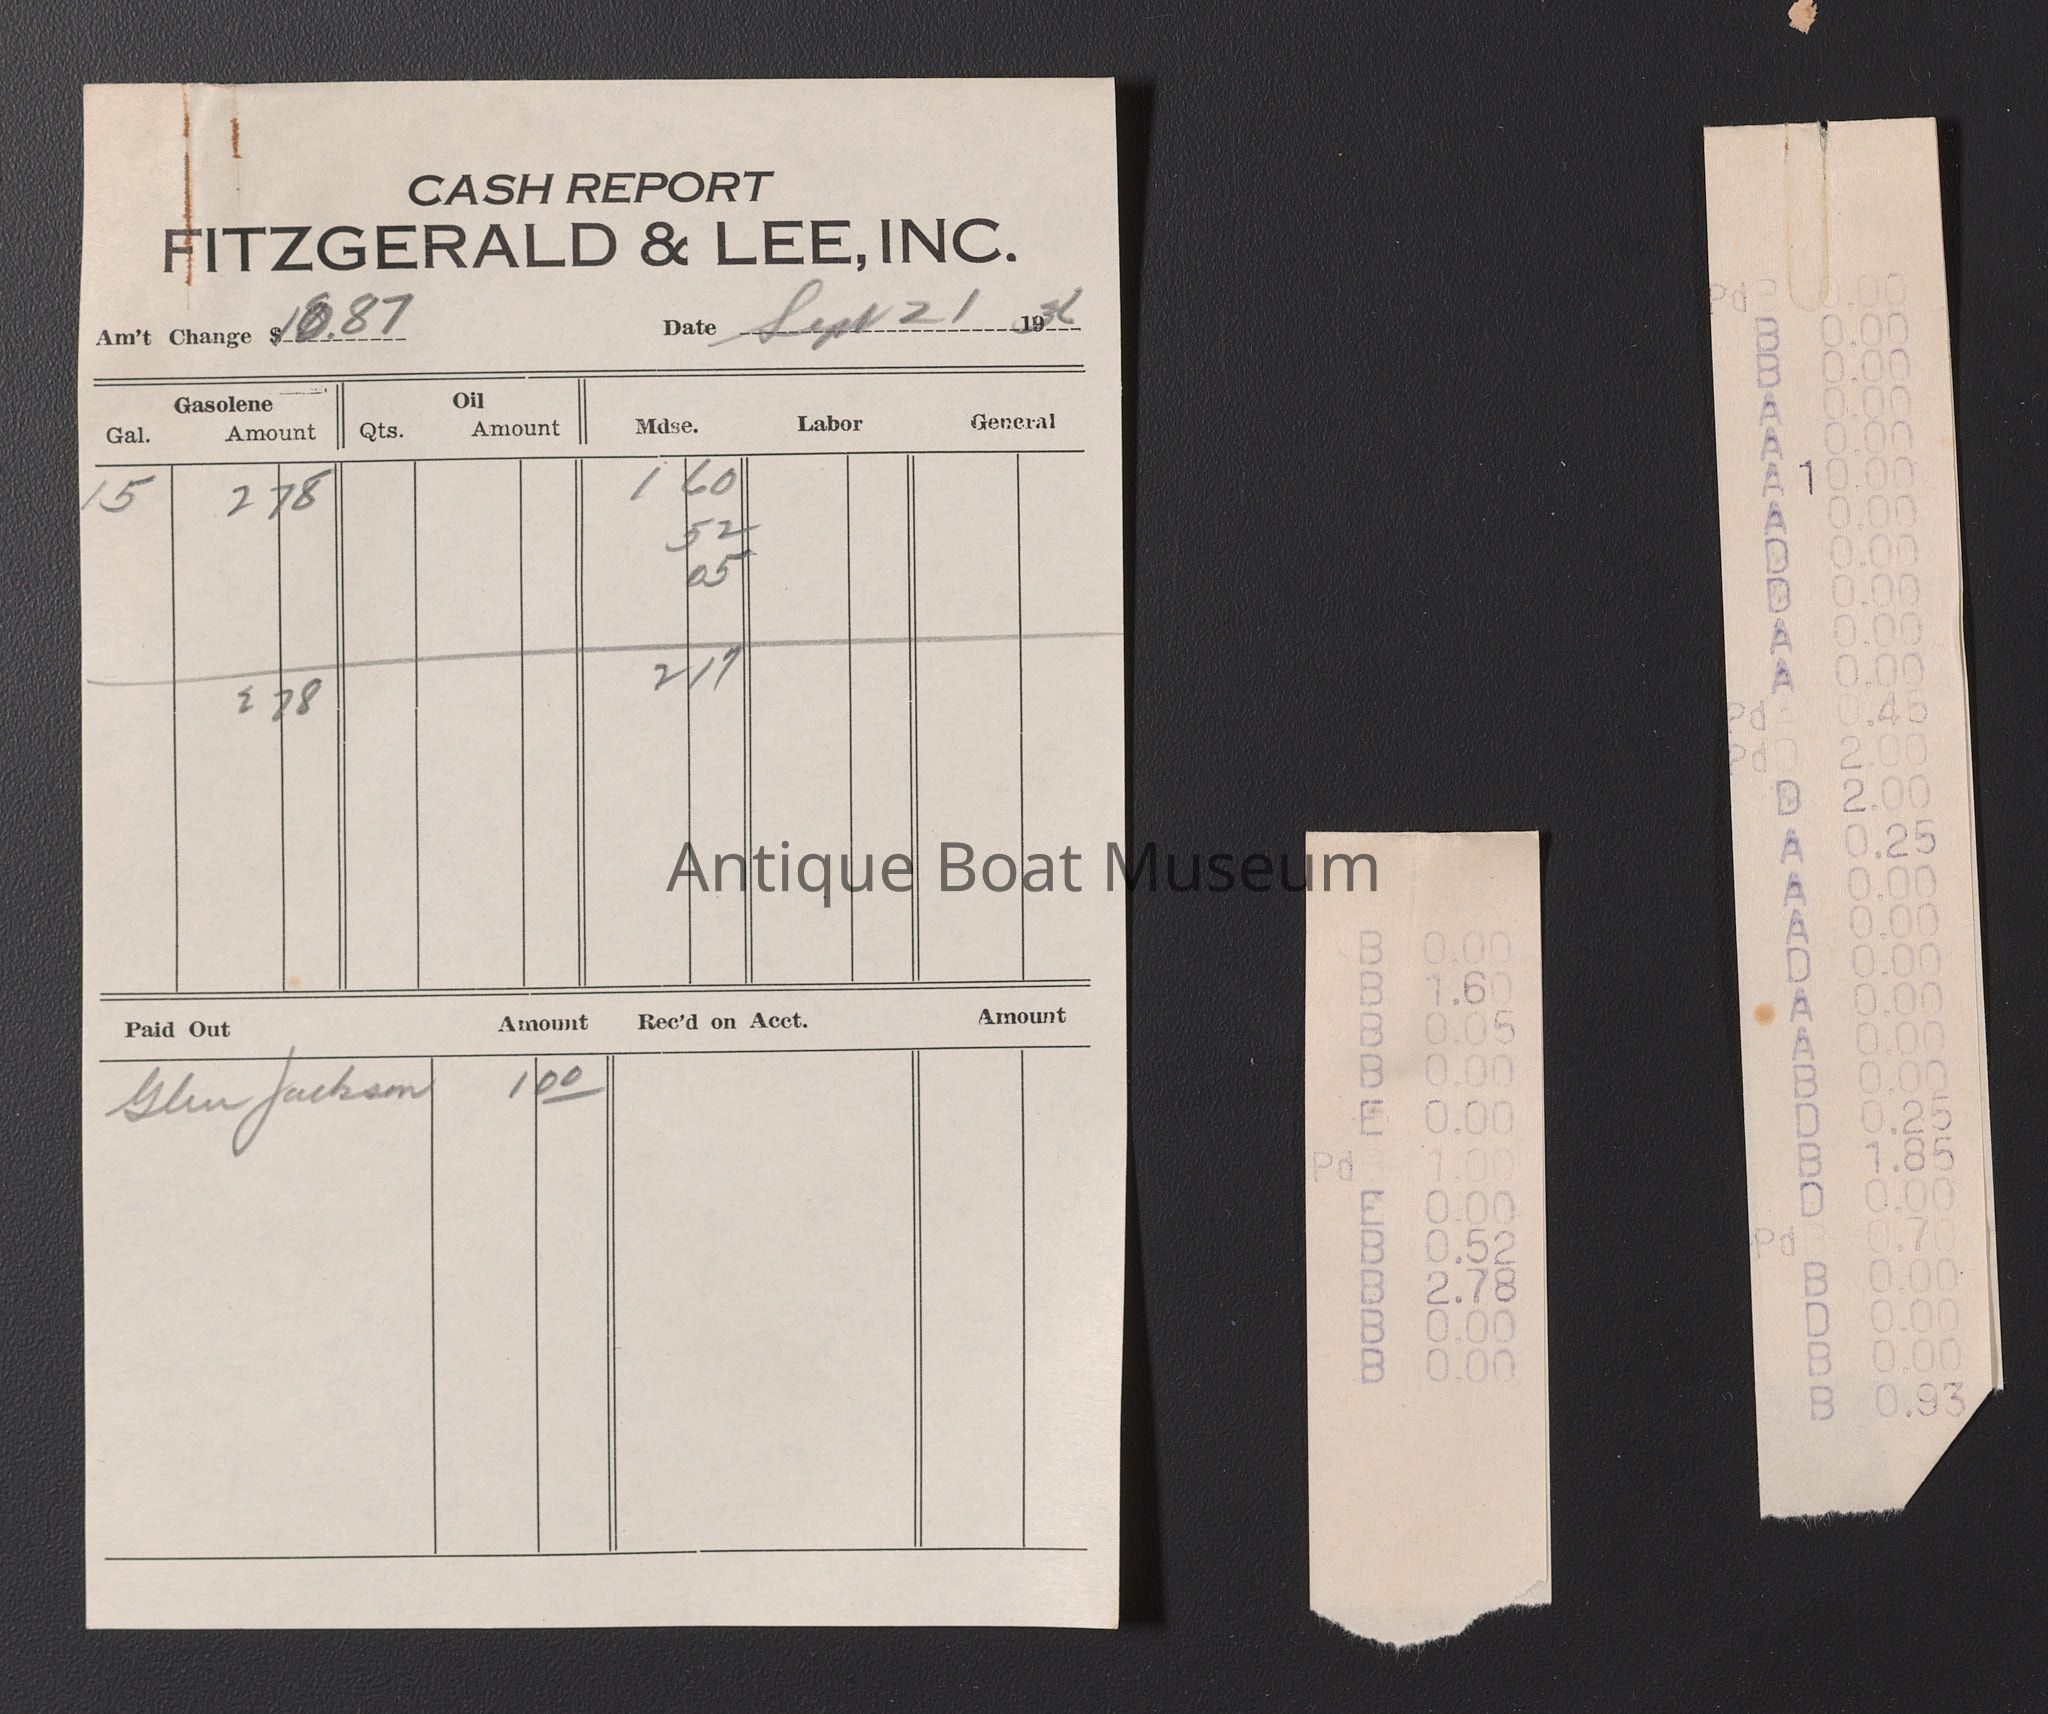 CASH REPORT
FITZGERALD & LEE, INC.
Am't Change $ .87 Date Sept 21 19
Gasolene Oil Mdse. Labor General
Gal. Amount Qts. Amount
15 2 78 1 60
52
05
2 78 2 17
Paid Out Amount Rec'd on Acct. Amount
Glen Jackson 1 00
Antique Boat Museum
B 0.00
B 1.60
B 0.05
B 0.00
E 0.00
Pd 1.00
E 0.00
B 0.52
B 2.78
B 0.00
B 0.00
Pd 0.00
B 0.00
B 0.00
A 0.00
A 0.00
A 10.00
A 0.00
D 0.00
D 0.00
A 0.00
A 0.00
Pd 0.45
Pd 2.00
D 2.00
A 0.25
A 0.00
A 0.00
D 0.00
A 0.00
A 0.00
B 0.00
D 0.25
B 1.85
D 0.00
Pd 0.70
B 0.00
D 0.00
B 0.00
B 0.93